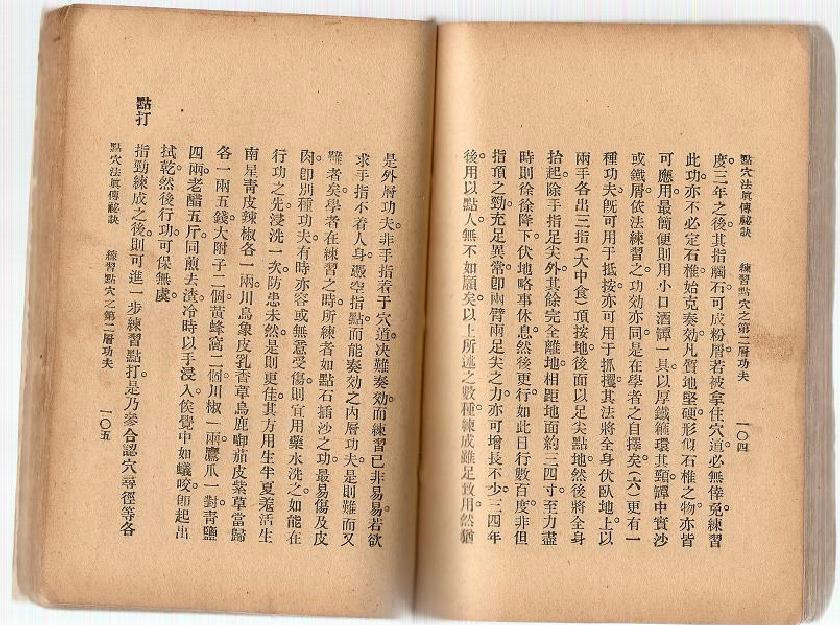 點穴法眞傳秘訣　練習點穴之第二層功夫　一〇四
度。三年之後。其指觸石可成粉屑。若被拿住穴道。必無倖免。練習
此功。亦不必定石椎始克奏効。凡質地堅硬。形似石椎之物。亦皆
可應用。最簡便則用小口酒罈一具。以厚鐵箍環其頸。罈中實沙
或鐵屑。依法練習之。功効亦同。是在學者之自擇矣。(六)更有一
種功夫。旣可用于抵按。亦可用于抓攫。其法將全身伏臥地上。以
兩手各出三指(大中食)頂按地。後面以足尖點地。然後將全身
抬起。除手指足尖外。其餘完全離地。相距地面約三四寸。至力盡
時則徐徐降下。伏地略事休息。然後更行。如此日行數百度。非但
指頂之勁充足異常。卽兩臂兩足尖之力。亦可增長不少。三四年
後。用以點人。無不如願矣。以上所述之數種。練成雖足致用。然猶
是外層功夫。非手指着于穴道。决難奏効。而練習已非易易。若欲
求手指不着人身。憑空指點。而能奏効之內層功夫。是則難而又
難者矣。學者在練習之時。所練者如點石插沙之功。最易傷及皮
肉。卽別種功夫。有時亦容或無意受傷。則宜用藥水洗之。如能在
行功之先。浸洗一次。防患未然。是則更佳。其方用生半夏羌活生
南星靑皮辣椒各一兩。川烏象皮乳香草烏鹿啣茄皮紫草當歸
各一兩五錢。大附子二個。黃蜂窩二個。川椒一兩。鷹爪一對。靑鹽
四兩。老醋五斤。同煎去渣。冷時以手浸入。俟覺中如蟻咬。卽起出
拭乾。然後行功。可保無虞。
點打　指勁練成之後。則可進一步練習點打。是乃參合認穴尋徑等各
點穴法眞傳秘訣　練習點穴之第二層功夫　一〇五